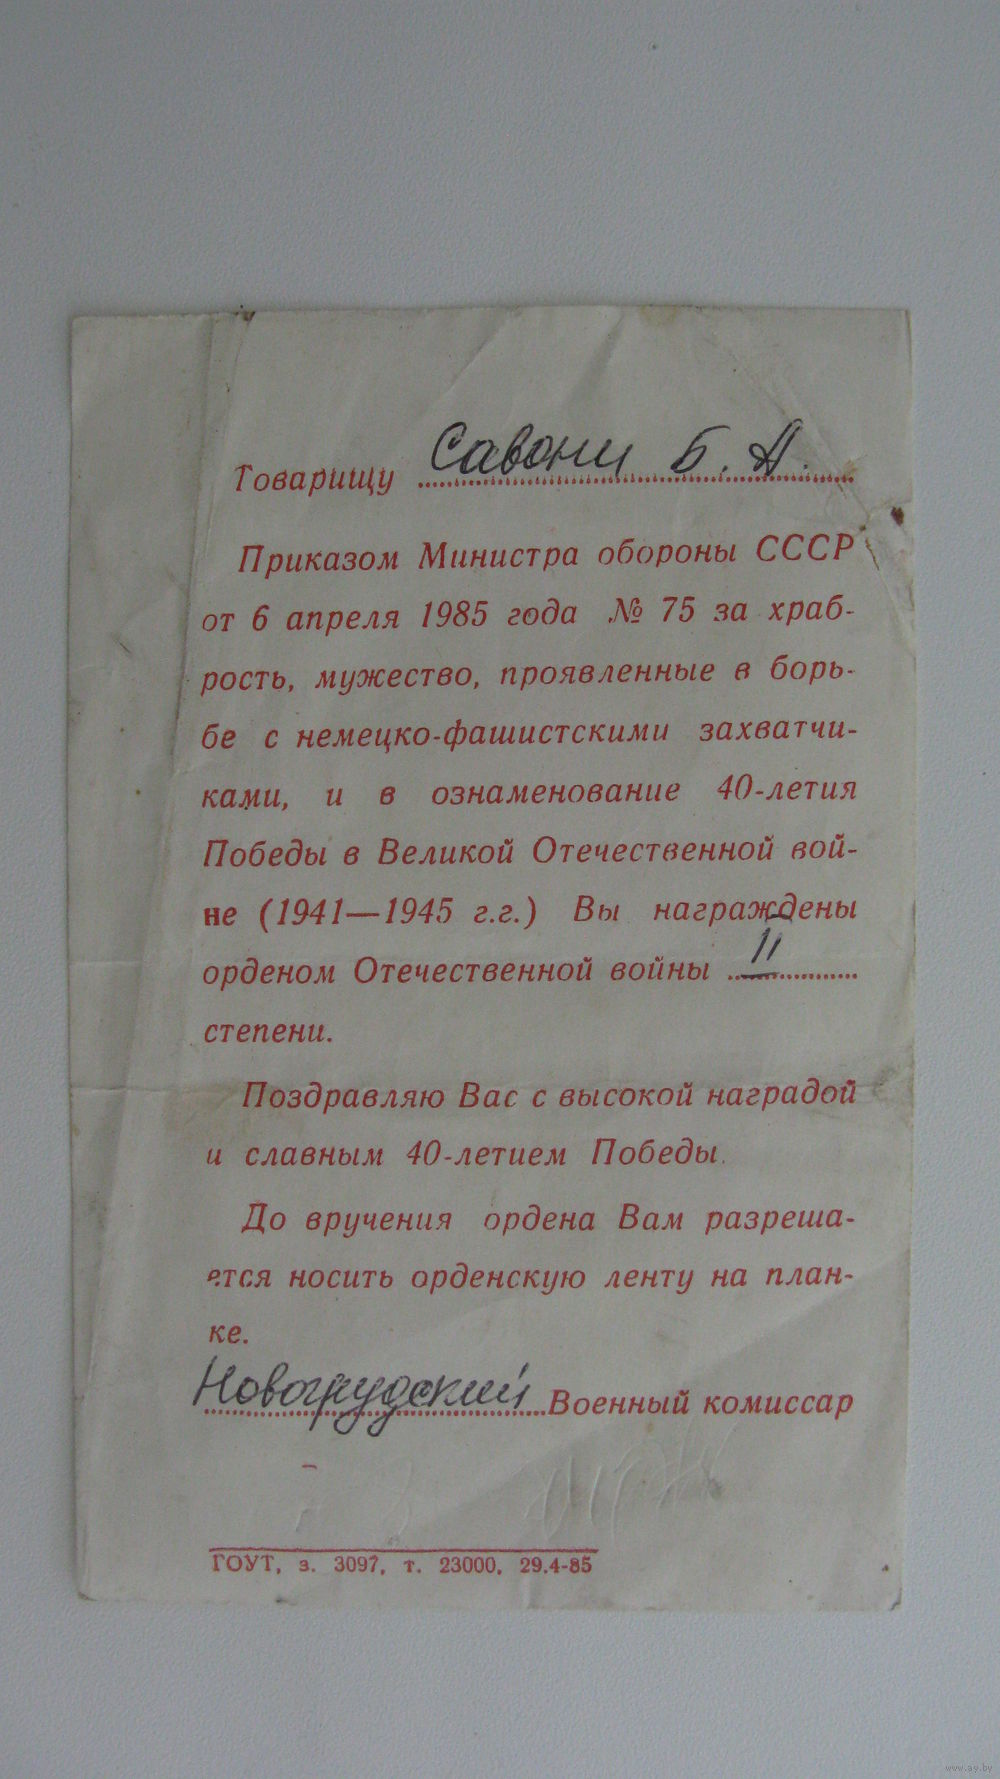 Товарищу Савони Б. А.
Приказом Министра обороны СССР
от 6 апреля 1985 года № 75 за храб-
рость, мужество, проявленные в борь-
бе с немецко-фашистскими захватчи-
ками, и в ознаменование 40-летия
Победы в Великой Отечественной вой-
не (1941—1945 г.г.) Вы награждены
орденом Отечественной войны II
степени.
Поздравляю Вас с высокой наградой
и славным 40-летием Победы.
До вручения ордена Вам разреша-
ется носить орденскую ленту на план-
ке.
Новогрудский Военный комиссар
ГОУТ, з. 3097, т. 23000, 29.4-85
www.ay.by